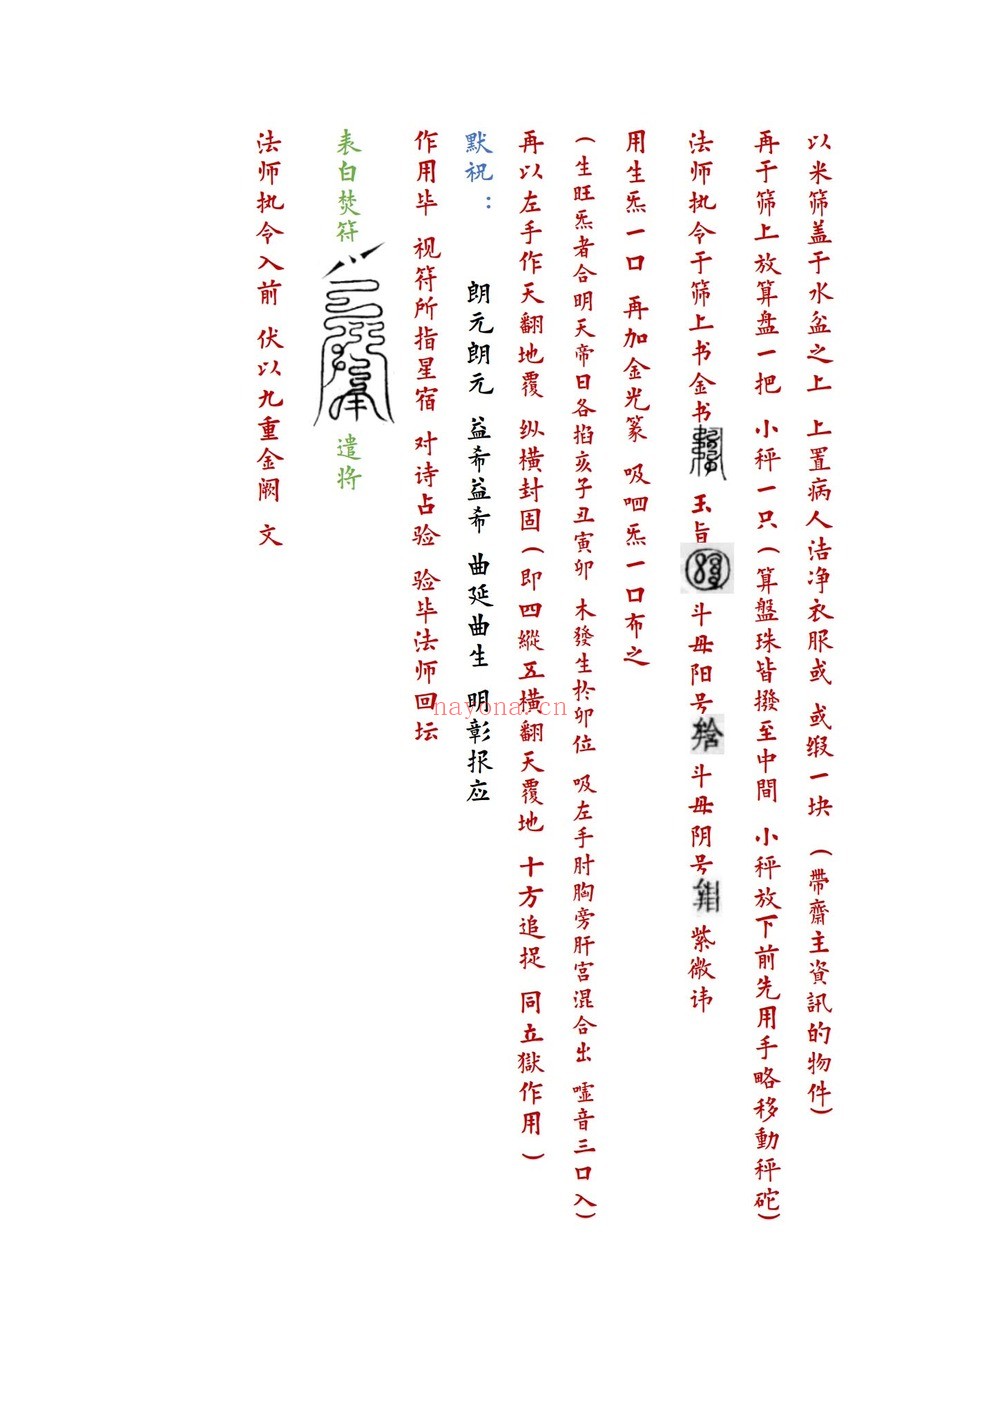 以米筛盖于水盆之上 上置病人洁净衣服或 或缎一块 （帶齋主資訊的物件）
再于筛上放算盘一把 小秤一只（算盤珠皆撥至中間 小秤放下前先用手略移動秤砣）
法师执令于筛上书金书 玉旨 斗母阳号 斗母阴号 紫微讳
用生炁一口 再加金光篆 吸呬炁一口布之
（生旺炁者合明天帝日各掐亥子丑寅卯 木發生扵卯位 吸左手肘胸旁肝宫混合出 噓音三口入）
再以左手作天翻地覆 纵横封固（即四縱五横翻天覆地 十方追捉 同立獄作用）
默祝： 朗元朗元 益希益希 曲延曲生 明彰报应
作用毕 视符所指星宿 对诗占验 验毕法师回坛
表白焚符 遣将
法师执令入前 伏以九重金阙 文
nayona.cn